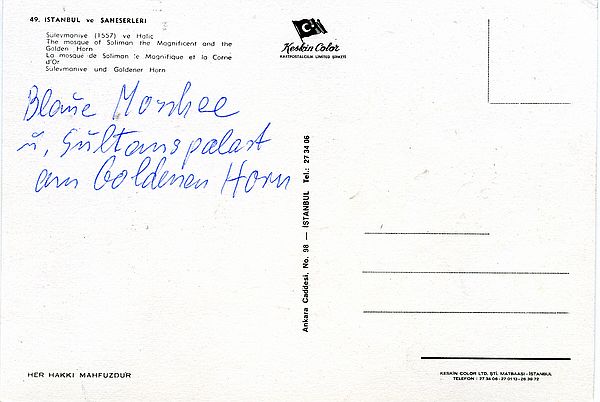 49. ISTANBUL ve ŞAHESERLERİ
Süleymaniye (1557) ve Haliç
The mosque of Soliman the Magnificent and the
Golden Horn
La mosque de Soliman le Magnifique et la Corne
d'Or
Süleymaniye und Goldener Horn
Keskin Color
KARTPOSTALCILIK LIMITED ŞİRKETİ
Blaue Moschee
u. Sultanspalast
am Goldenen Horn
Ankara Caddesi, No. 98 — İSTANBUL Tel.: 27 34 06
HER HAKKI MAHFUZDUR
KESKİN COLOR LTD. ŞTİ. MATBAASI - İSTANBUL
TELEFON : 27 34 06 - 27 01 12 - 26 39 72